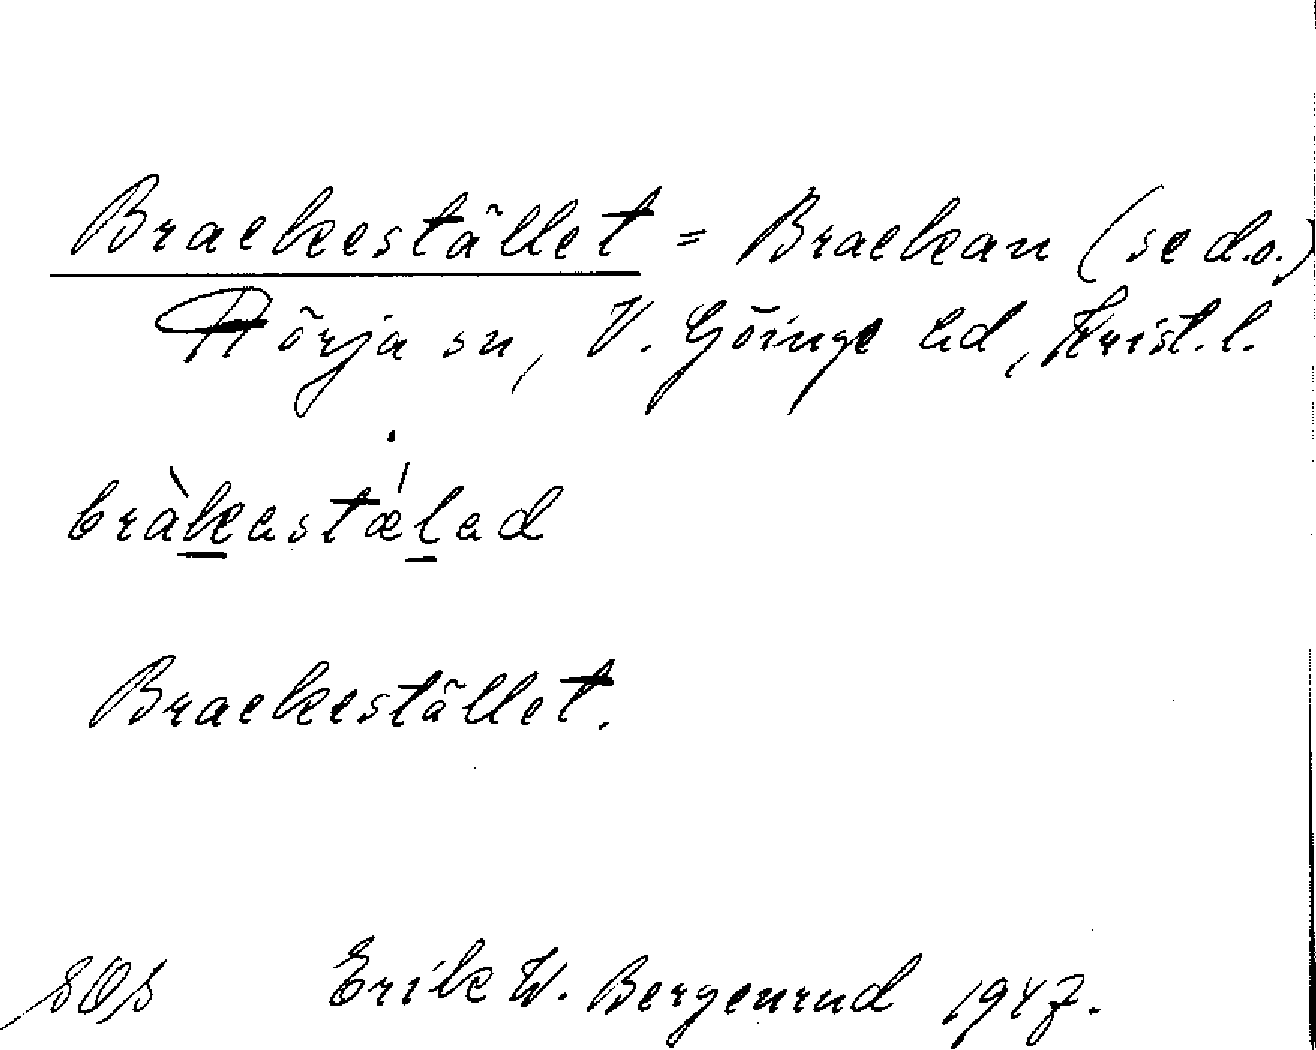 Brackestället = Brackan (se d.o.)
Hörja sn, V. Göinge hd, Krist. l.
bràkastǽlad
Brackestället.
SOS Erik W. Bergenrud 1947.